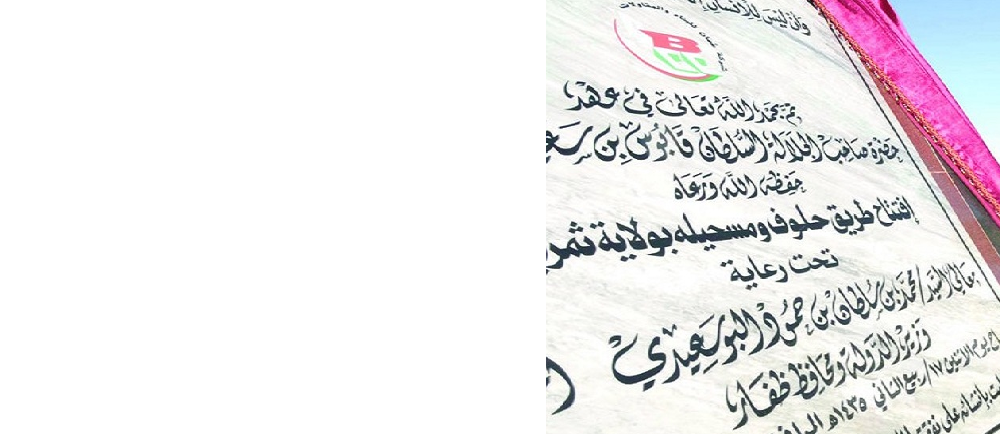 وأن ليس للإنسان إلا
B
تم بحمد الله تعالى في عهد
حضرة صاحب الجلالة السلطان قابوس بن سعي
حفظه الله ورعاه
إفتتاح طريق حلوف ومسحيله بولاية ثمر
تحت رعاية
معالي السيد/ محمد بن سلطان بن حمود البوسعيدي
وزير الدولة ومحافظ ظفار
يوم الاثنين ١٧/ ربيع الثاني ١٤٣٥هـ
بإنشائه على نفقة